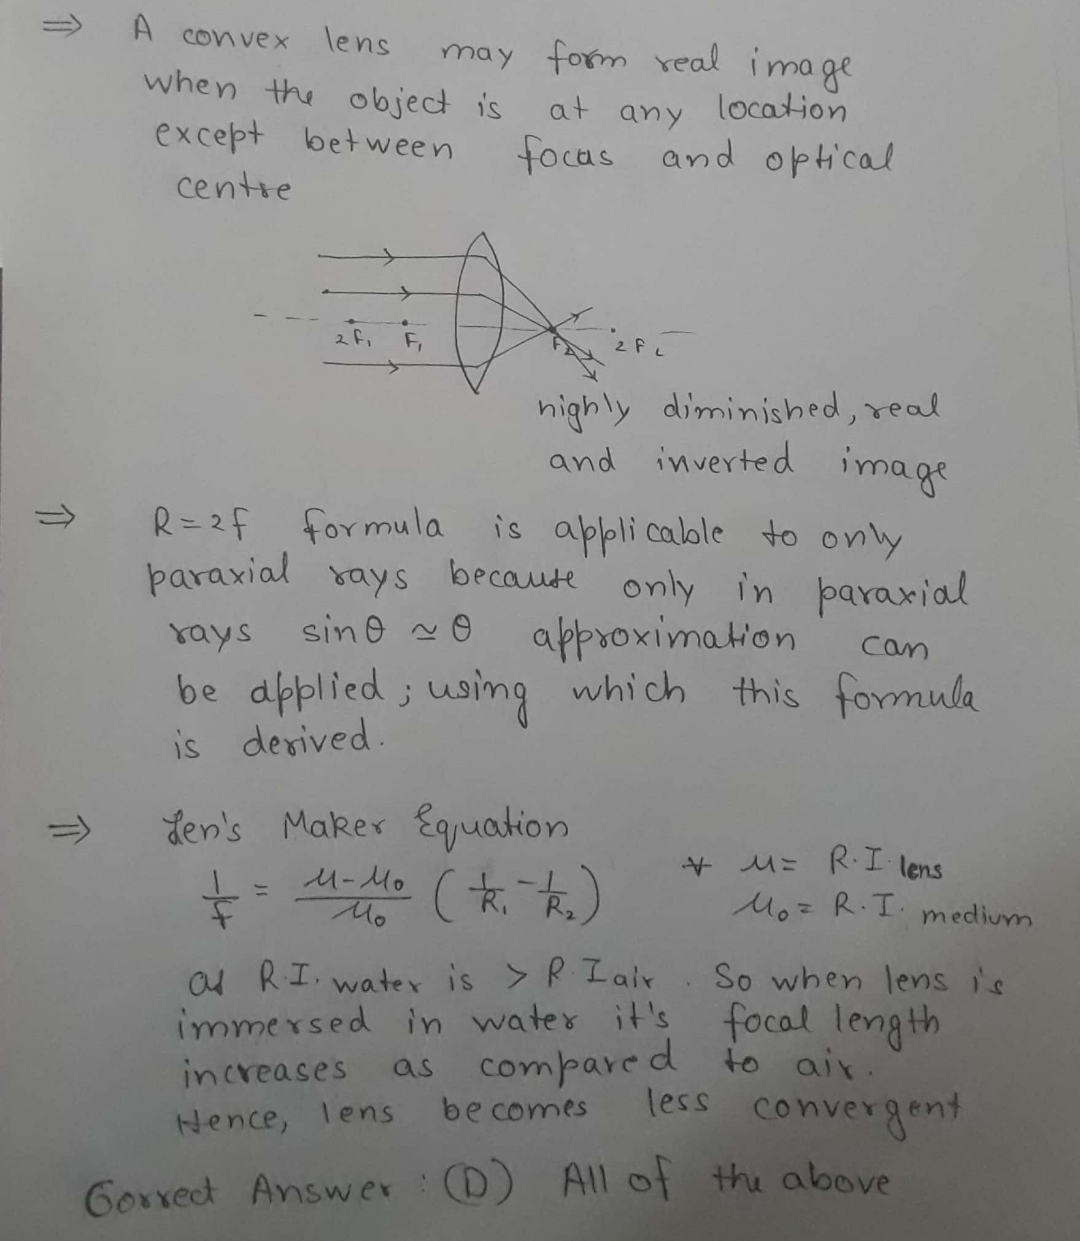 ⇒ A convex lens may form real image
when the object is at any location
except between focus and optical
centre
2F₁ F₁ F₂ 2F₂
highly diminished, real
and inverted image
⇒ R = 2f formula is applicable to only
paraxial rays because only in paraxial
rays sinθ ≃ θ approximation can
be applied; using which this formula
is derived.
⇒ Len's Maker Equation
1/f = μ-μ₀/μ₀ (1/R₁ - 1/R₂) * μ = R.I. lens
μ₀ = R.I. medium
as R.I. water is > R.I air. So when lens is
immersed in water it's focal length
increases as compared to air.
Hence, lens becomes less convergent
Correct Answer : (D) All of the above